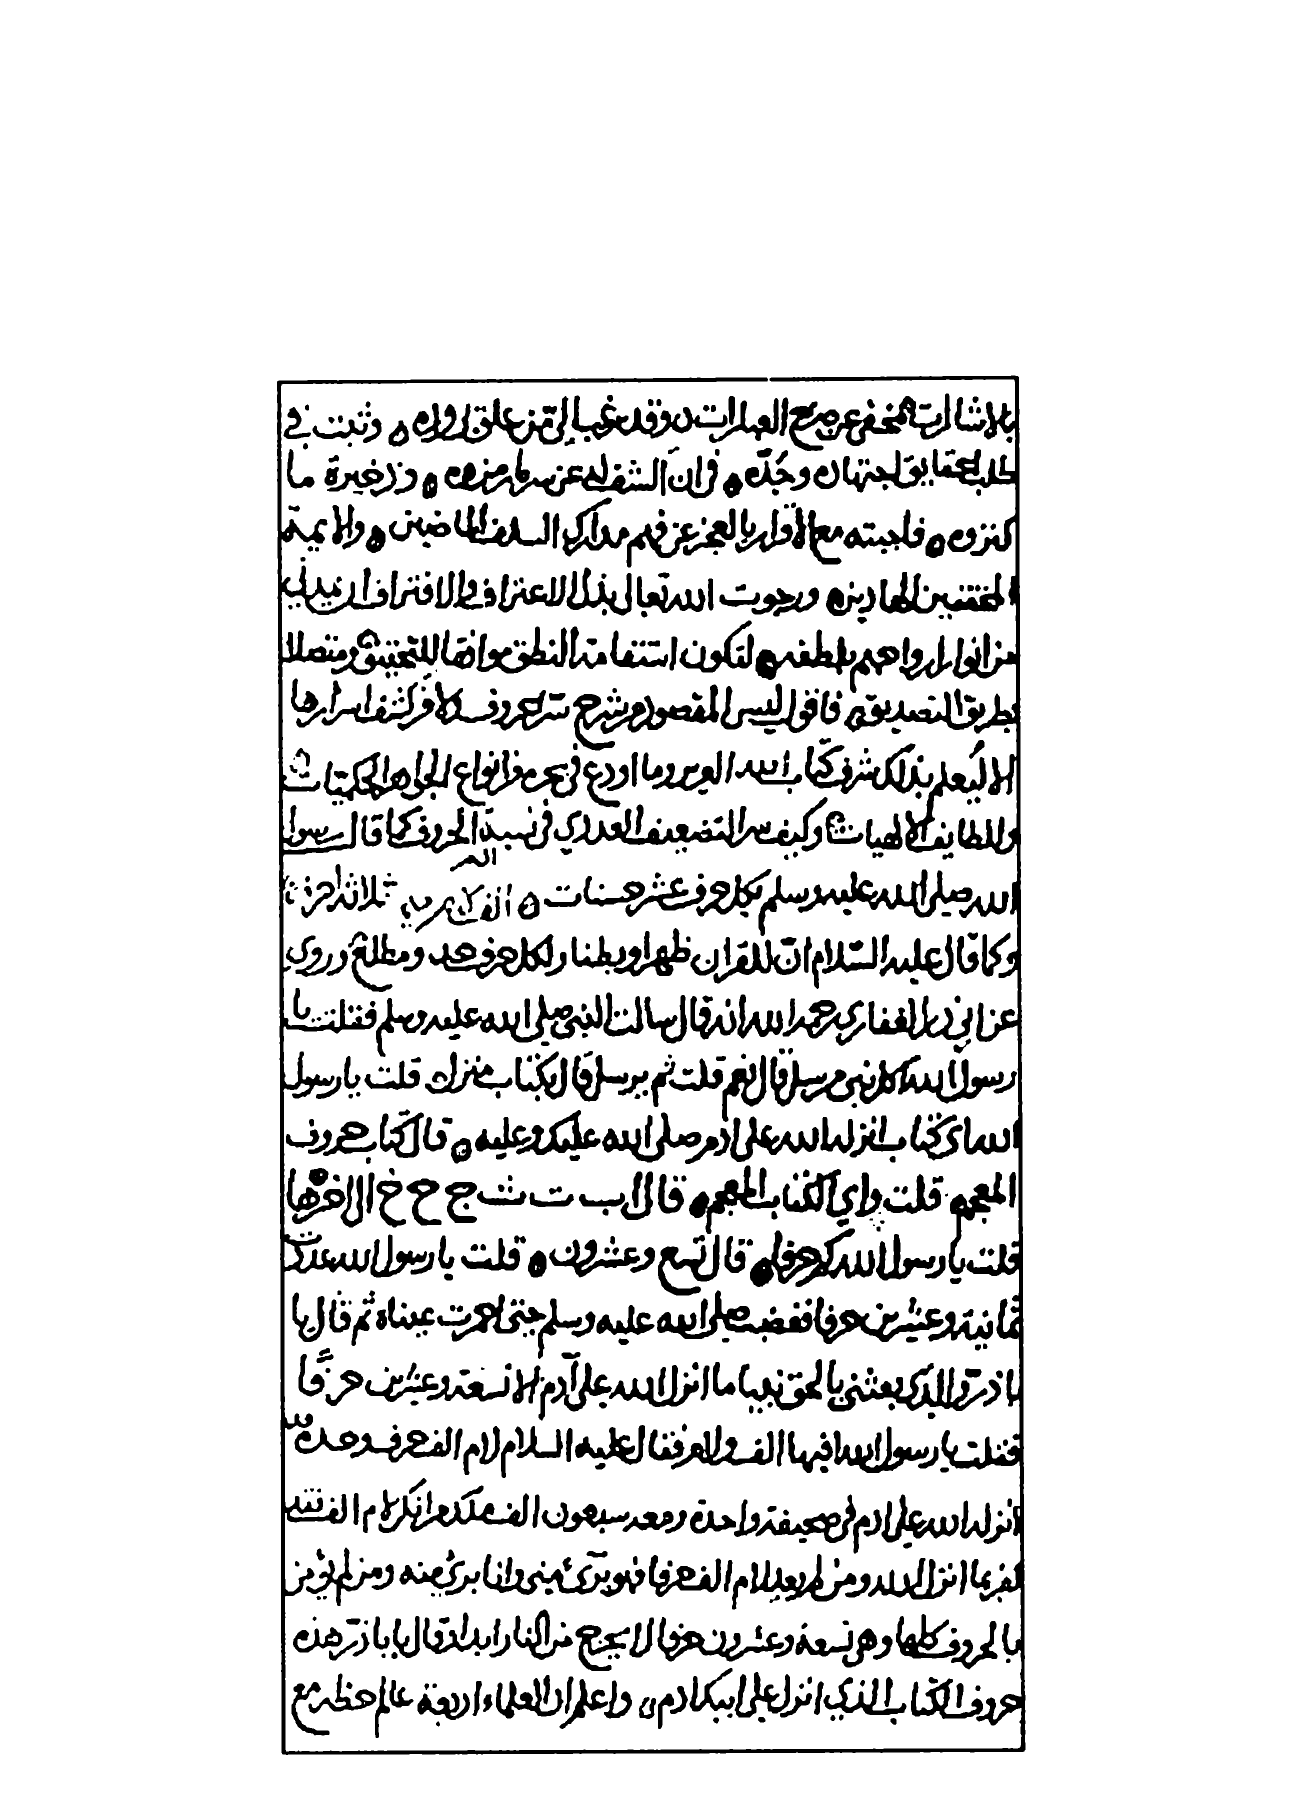 بالاشارات تخفى عن صريح العبارات وقد رغب الى من علق ارواده وثبت في
طلب الحقايق اجتهاده وجده في ان الشف له عن سرار مزوه وذخيرة ما
كنزوه فاجبته مع الاقرار بالعجز عن فهم مدارك السلف الماضين والايمة
المتقين الهادين ورجوت الله تعالى بذل الاعتراف والاقتراف ان يمدني
من انوار ارواحهم بلطفه لتكون استقامة النطق موافقا للتحقيق ومتصلا
بطريق التصديق فاقول ليس المقصود من شرح سر الحروف لاكشف اسرارها
الا ليعلم بذلك شرف كتاب الله العزيز وما اودع في بحره من انواع الجواهر الحكميات
واللطايف الالهيات وكيف سر التضعيف العددي في نسبة الحروف كما قال رسول
الله صلى الله عليه وسلم بكل حرف عشر حسنات الم الف لام ميم ثلاثة احرف
وكما قال عليه السلام ان للقران ظهرا وبطنا ولكل حرف حد ومطلع وروي
عن ابي ذر الغفاري رحمه الله انه قال سالت النبي صلى الله عليه وسلم فقلت يا
رسول الله كل نبي مرسل قال نعم قلت ثم يرسل قال بكتاب منزل قلت يا رسول
الله اي كتاب انزله الله على ادم صلى الله عليك وعليه قال كتاب حروف
المعجم قلت واي الكتاب المعجم قال ا ب ت ث ج ح خ الى اخرها
قلت يا رسول الله كم حرفا قال تسع وعشرون قلت يا رسول الله عددت
ثمانية وعشرين حرفا فغضب صلى الله عليه وسلم حتى احمرت عيناه ثم قال يا
با ذر والذي بعثني بالحق نبيا ما انزل الله على آدم الا تسعة وعشرين حرفا
فقلت يا رسول الله فيها الف ولام فقال عليه السلام لام الف حرف واحد
انزله الله على ادم في صحيفة واحدة ومعه سبعون الف ملك من انكر لام الف فقد
كفر بما انزل الله ومن لم يعد لام الف حرفا فهو بريء مني وانا بريء منه ومن لم يؤمن
بالحروف كلها وهي تسعة وعشرون حرفا لا يخرج من النار ابدا وقال يا با ذر هذه
حروف الكتاب الذي انزل على ابيك ادم واعلم ان العلماء اربعة عالم حظه مع